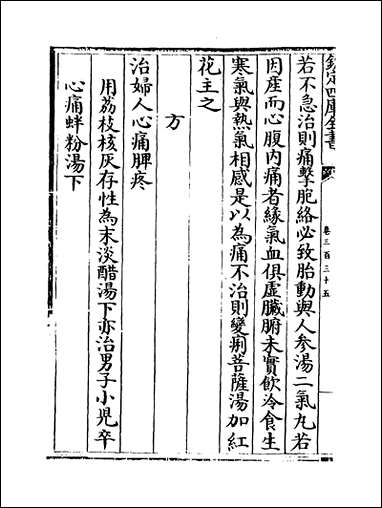 欽定四庫全書
卷三百三十五
若不急治則痛擊胞絡必致胎動與人參湯二氣丸若
因産而心腹内痛者緣氣血俱虚臟腑未實飲冷食生
寒氣與熱氣相感是以為痛不治則變痢菩薩湯加紅
花主之
方
治婦人心痛脾疼
用荔枝核灰存性為末淡醋湯下亦治男子小兒卒
心痛蚌粉湯下